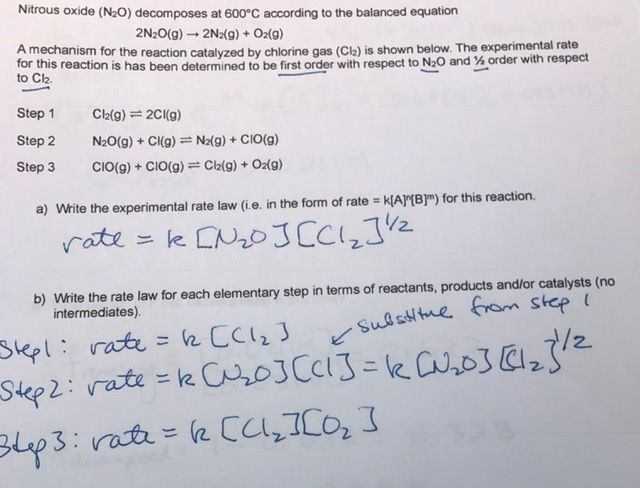 Nitrous oxide (N₂O) decomposes at 600°C according to the balanced equation
2N₂O(g) → 2N₂(g) + O₂(g)
A mechanism for the reaction catalyzed by chlorine gas (Cl₂) is shown below. The experimental rate
for this reaction is has been determined to be first order with respect to N₂O and ½ order with respect
to Cl₂.
Step 1 Cl₂(g) ⇌ 2Cl(g)
Step 2 N₂O(g) + Cl(g) ⇌ N₂(g) + ClO(g)
Step 3 ClO(g) + ClO(g) ⇌ Cl₂(g) + O₂(g)
a) Write the experimental rate law (i.e. in the form of rate = k[A]ⁿ[B]ᵐ) for this reaction.
rate = k [N₂O][Cl₂]^1/2
b) Write the rate law for each elementary step in terms of reactants, products and/or catalysts (no
intermediates).
↙ Substitue from step 1
Step1: rate = k [Cl₂]
Step2: rate = k [N₂O][Cl] = k [N₂O][Cl₂]^1/2
Step3: rate = k [Cl₂][O₂]